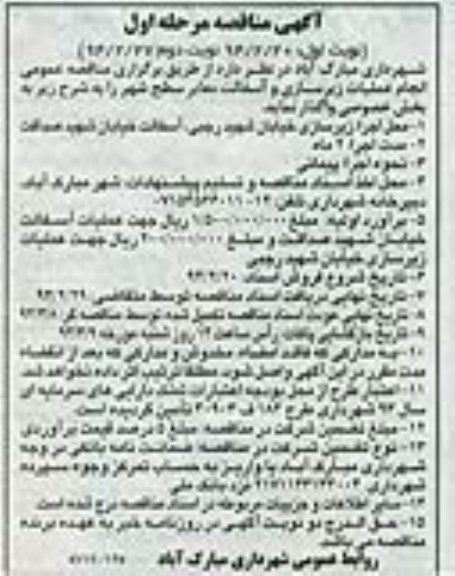 آگهی مناقصه مرحله اول
(نوبت اول: ۹۳/۲/۲۰ نوبت دوم ۹۳/۲/۲۷)
شهرداری مبارک آباد در نظر دارد از طریق برگزاری مناقصه عمومی
انجام عملیات زیرسازی و آسفالت معابر سطح شهر را به شرح زیر به
بخش خصوصی واگذار نماید.
۱- محل اجرا: زیرسازی خیابان شهید رجبی، آسفالت خیابان شهید صداقت
۲- مدت اجرا: ۲ ماه
۳- نحوه اجرا: پیمانی
۴- محل اخذ اسناد مناقصه و تسلیم پیشنهادات: شهر مبارک آباد،
دبیرخانه شهرداری تلفن:
۵- برآورد اولیه: مبلغ ۱/۵۰۰/۰۰۰/۰۰۰ ریال جهت عملیات آسفالت
خیابان شهید صداقت و مبلغ ۲۰۰/۰۰۰/۰۰۰ ریال جهت عملیات
زیرسازی خیابان شهید رجبی
۶- تاریخ شروع فروش اسناد: ۹۳/۲/۲۰
۷- تاریخ نهایی دریافت اسناد مناقصه توسط متقاضی: ۹۳/۲/۲۹
۸- تاریخ نهایی عودت اسناد مناقصه تکمیل شده توسط مناقصه گر: ۹۳/۳/۸
۹- تاریخ بازگشایی پاکات: رأس ساعت ۱۲ روز شنبه مورخه ۹۳/۳/۹
۱۰- به مدارکی که فاقد امضاء، مخدوش و مدارکی که بعد از انقضاء
مدت مقرر در این آگهی واصل شود، مطلقا ترتیب اثر داده نخواهد شد.
۱۱- اعتبار طرح از محل بودجه اعتبارات تملک دارایی های سرمایه ای
سال ۹۳ شهرداری طرح ۱۸۲ ف ۳۰۹۰۳ تأمین گردیده است.
۱۲- مبلغ تضمین شرکت در مناقصه: مبلغ ۵ درصد قیمت برآوردی
۱۳- نوع تضمین شرکت در مناقصه: ضمانت نامه بانکی در وجه
شهرداری مبارک آباد یا واریز به حساب تمرکز وجوه سپرده
شهرداری نزد بانک ملی
۱۴- سایر اطلاعات و جزییات مربوطه در اسناد مناقصه درج شده است.
۱۵- حق الدرج دو نوبت آگهی در روزنامه خبر به عهده برنده
مناقصه می باشد.
روابط عمومی شهرداری مبارک آباد